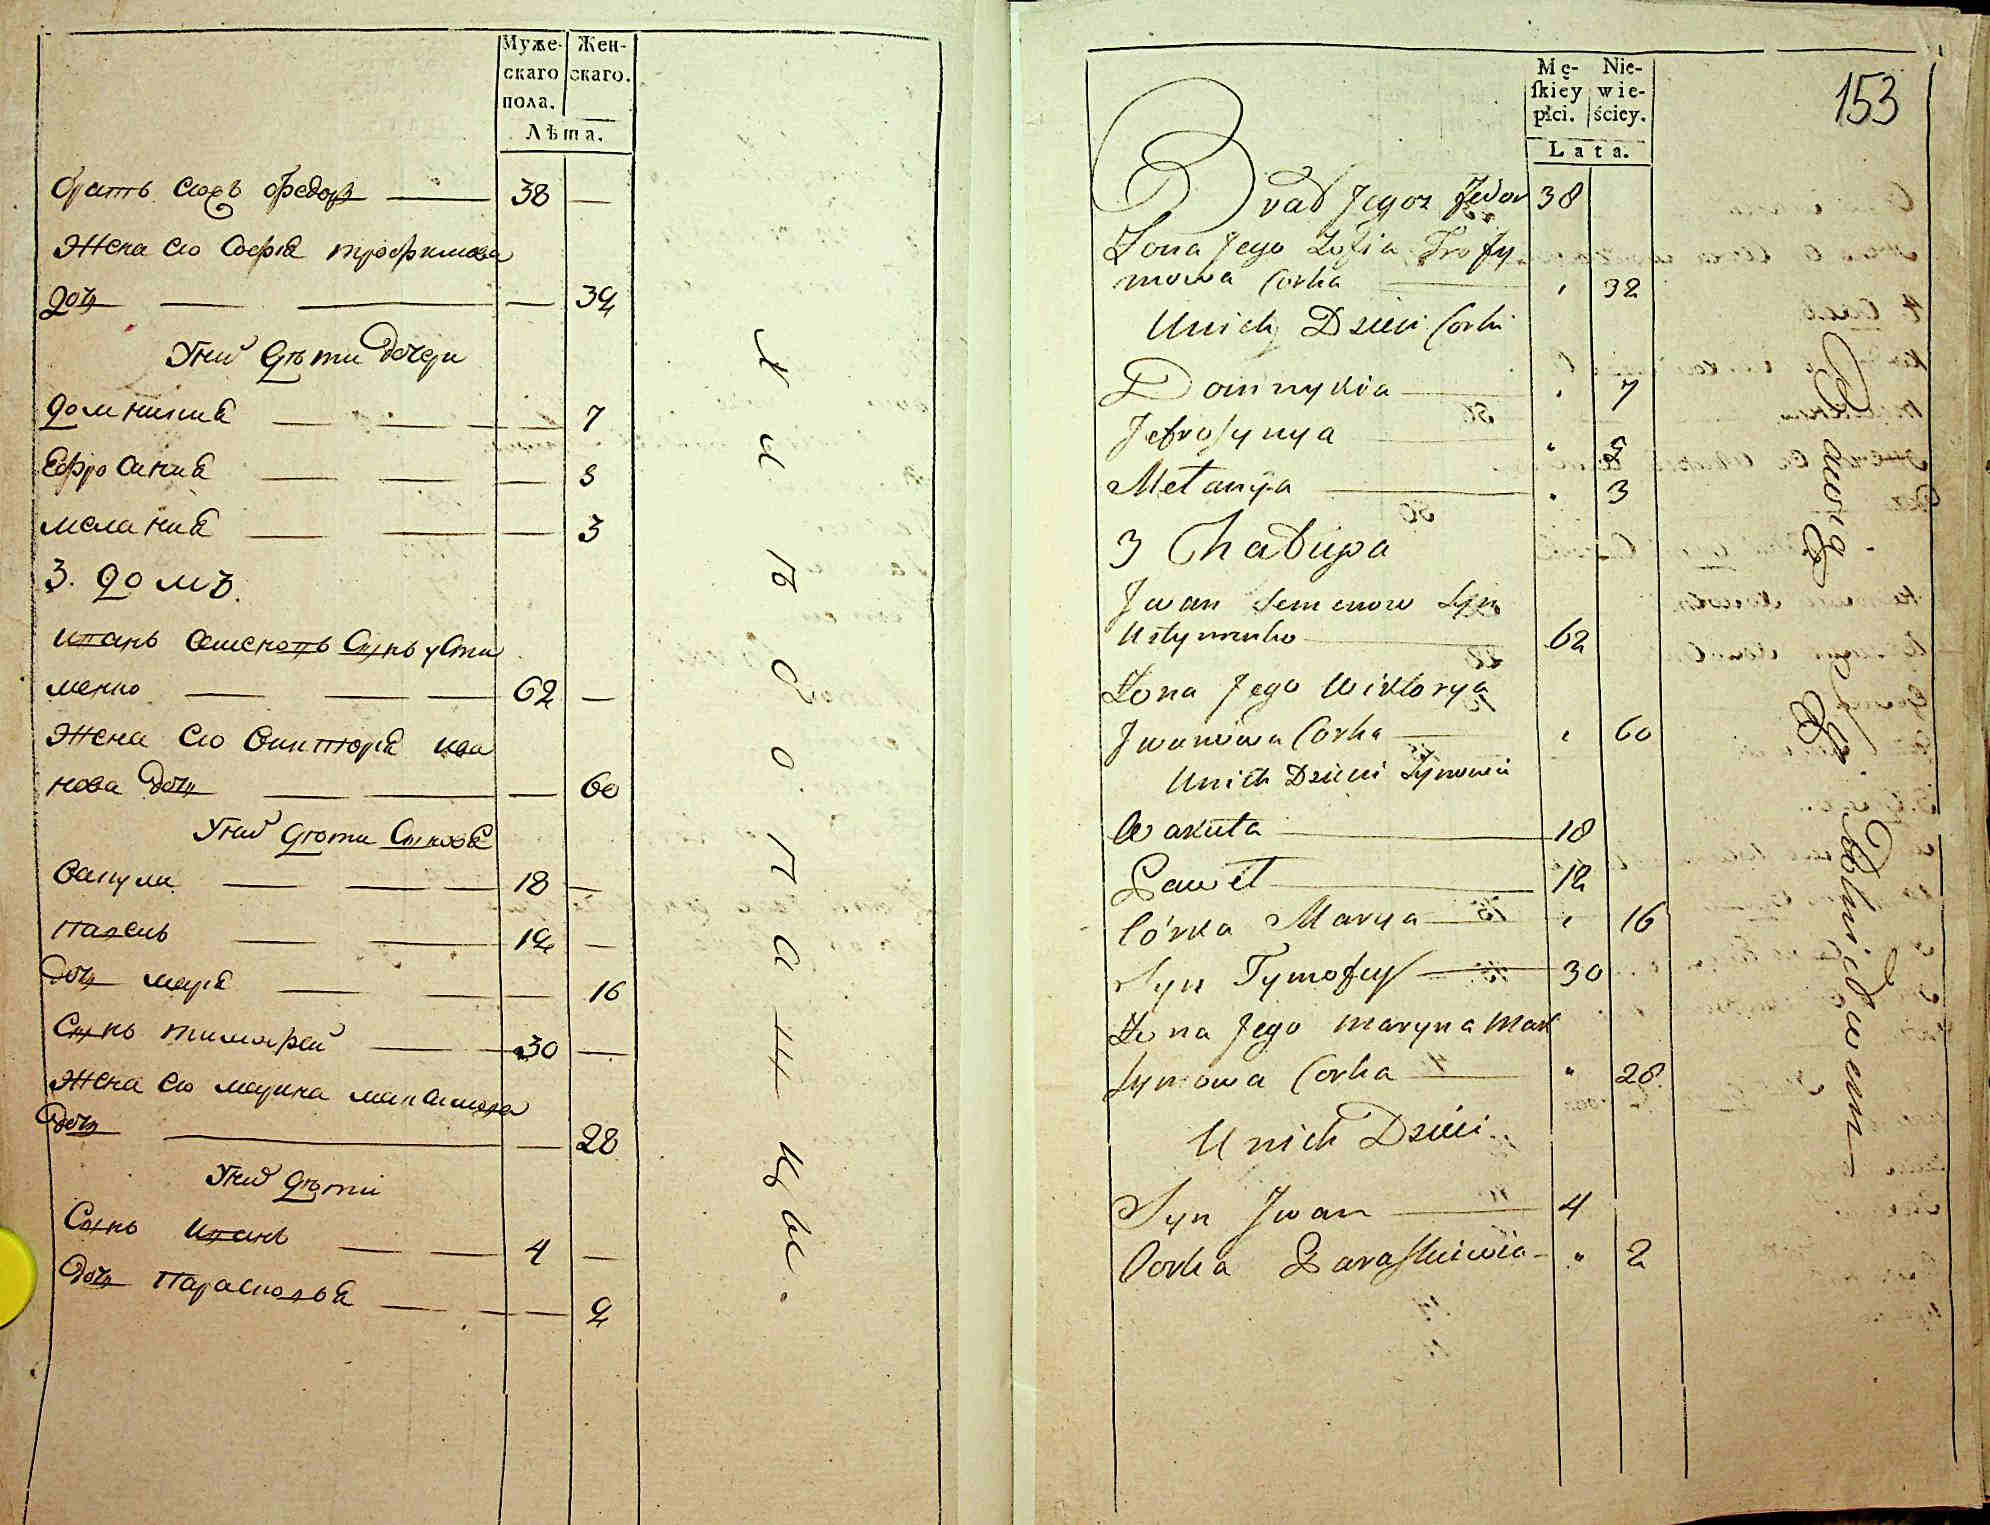 Муже- Жен-
скаго скаго.
пола.
Лѣта.
братъ єюхъ Федоръ 38 —
Жена єго Софія трофимова
дочь — 32
У них дѣти дочери
домникия — 7
Ефросиния — 5
мелания — 3
3. домъ.
иванъ Семеновъ Сынъ усти
менко 62 —
Жена єго виктория ива
нова дочь — 60
У них дѣти Синовя
вакула 18 —
павелъ 12 —
дочь мария — 16
Сынъ тимофей 30 —
Жена єго марина максимова
дочь — 28
У них дѣти
Сынъ иванъ 4 —
дочь парасковья — 2
хлѣбопашцы.
153
Mę- Nie-
skiey wie-
płci. ściey.
Lata.
Brad Jegoz Fedor 38
Żona Jego Zofia Trofy
mowa Corka 32
U nich Dzieci Corki
Domnykia 7
Jefrosynya 5
Melanija 3
3 Chałupa
Jwan Semenow Syn
Ustymenko 62
Żona Jego Wiktorya
Jwanowa Corka 60
U nich Dzieci Synowie
Wakuła 18
Paweł 12
Córka Marya 16
Syn Tymofey 30
Żona Jego Maryna Max
symowa Corka 28
U nich Dzieci
Syn Jwan 4
Corka Paraskiewia 2
Bawią Się Rolnictwem